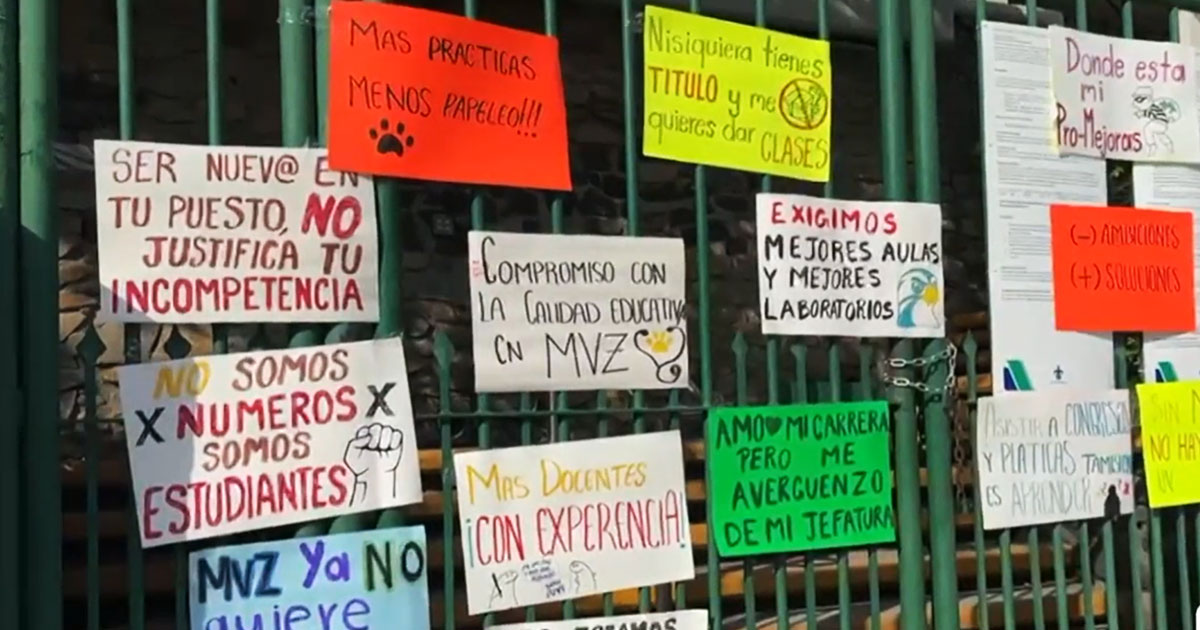 MAS PRACTICAS
MENOS PAPELEO!!!
Nisiquiera tienes
TITULO y me
quieres dar CLASES
Donde esta
mi
Pro-Mejoras
SER NUEV@ EN
TU PUESTO, NO
JUSTIFICA TU
INCOMPETENCIA
COMPROMISO CON
LA CALIDAD EDUCATIVA
EN MVZ
EXIGIMOS
MEJORES AULAS
Y MEJORES
LABORATORIOS
(-) AMBICIONES
(+) SOLUCIONES
NO SOMOS
X NUMEROS X
SOMOS
ESTUDIANTES
MAS DOCENTES
¡CON EXPERENCIA!
AMO MI CARRERA
PERO ME
AVERGUENZO
DE MI JEFATURA
ASISTIR A CONGRESOS
Y PLATICAS TAMBIEN
ES APRENDER
SIN
NO HA
UN
MVZ Ya NO
quiere